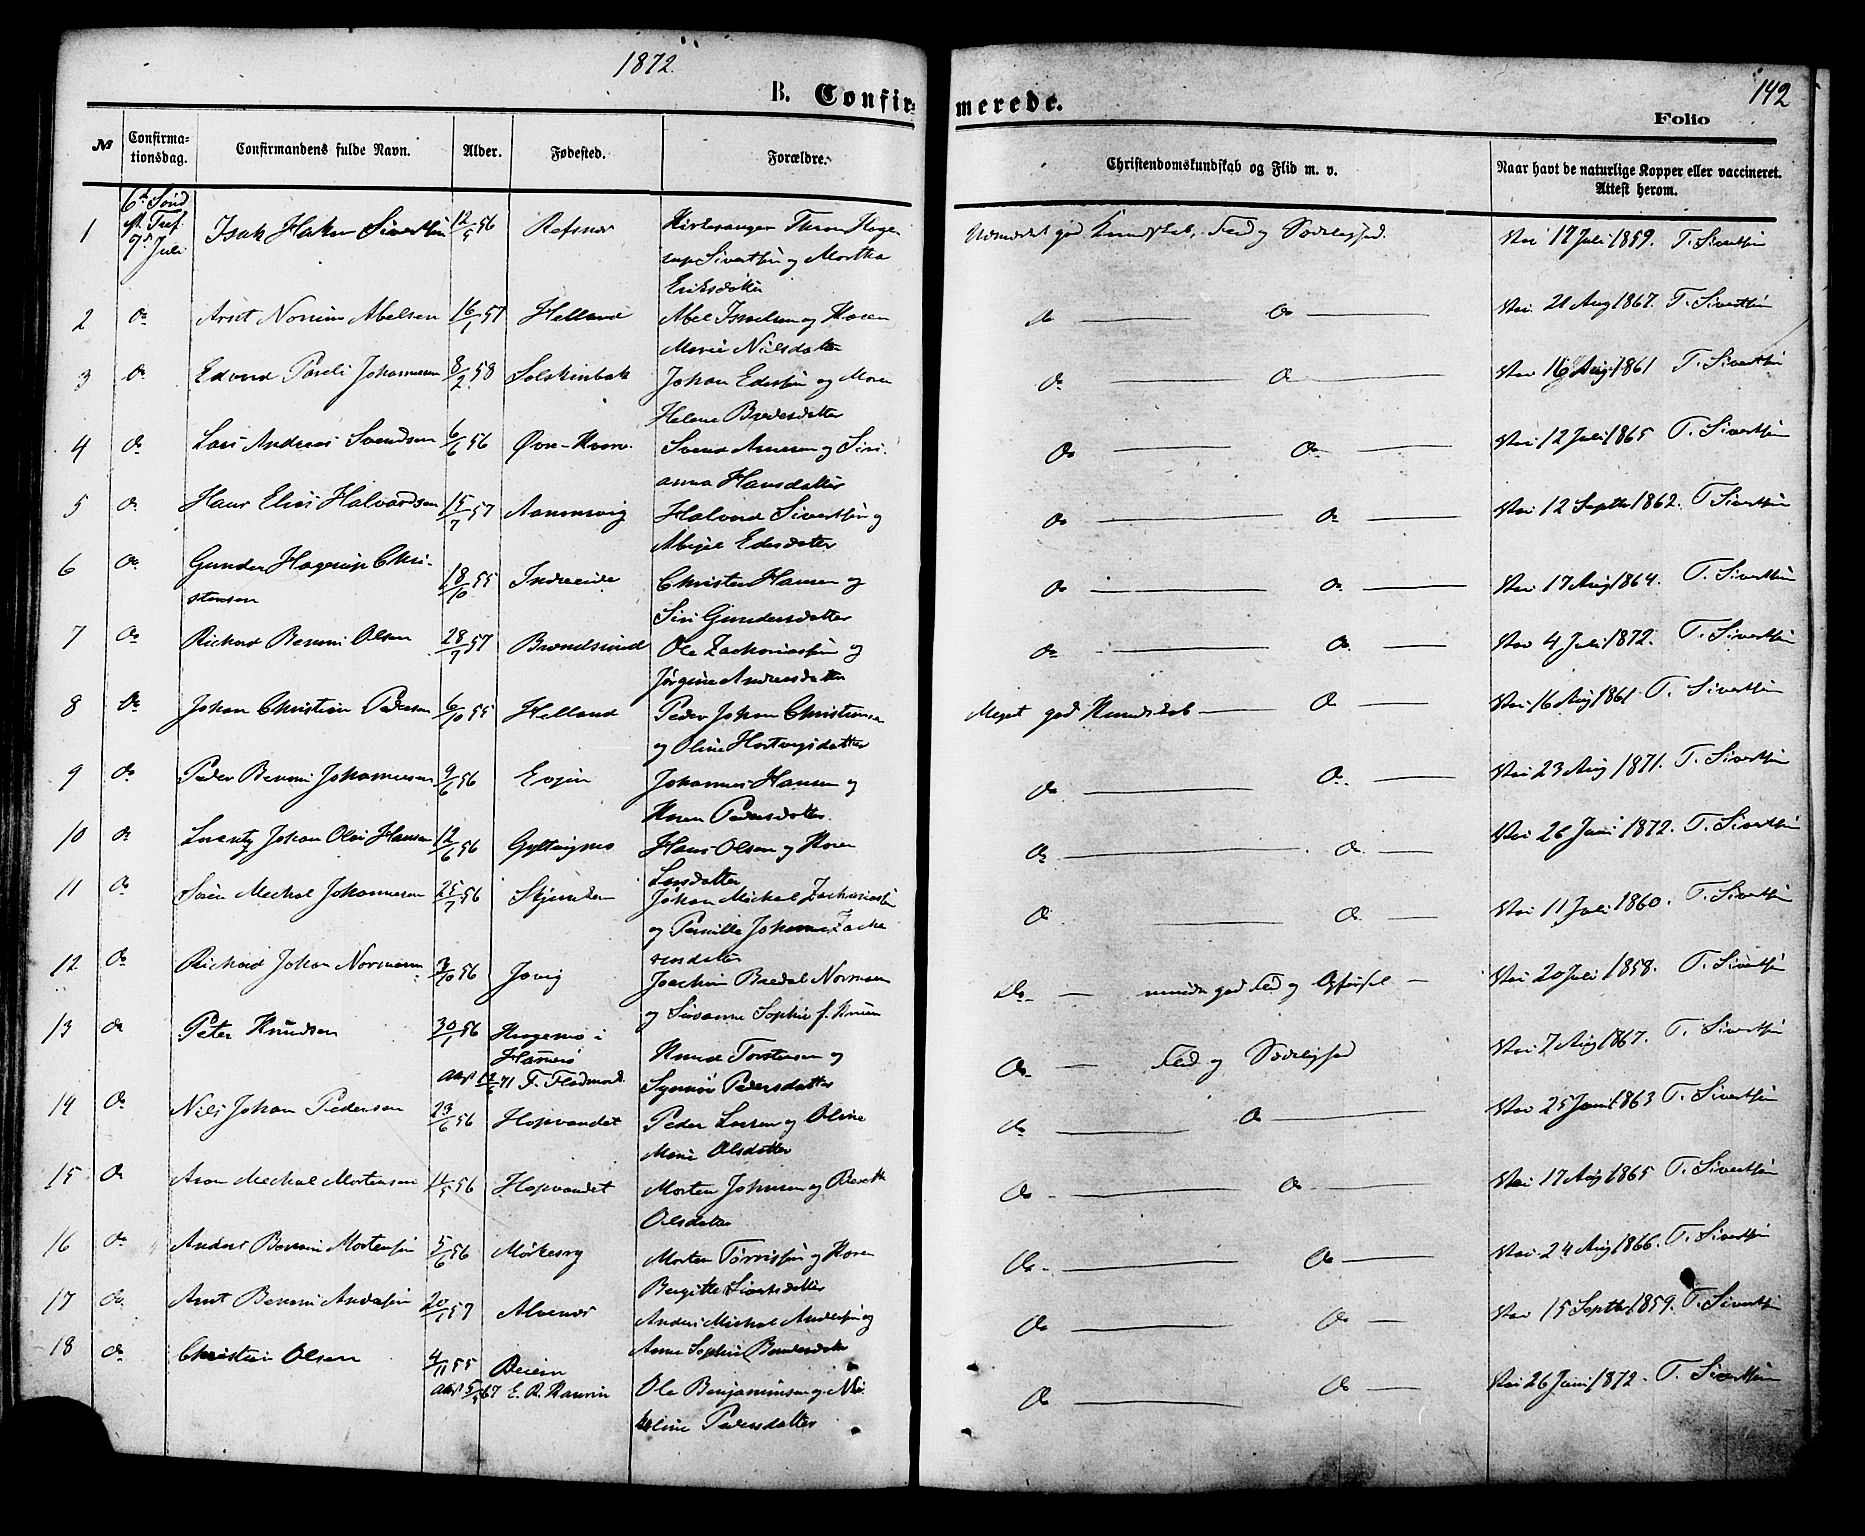 1872.
142
B. Confirmerede.
Folio
№ Confirmationsdag. Confirmandens fulde Navn. Alder. Fødested. Forældre. Christendomskundskab og Flid m. v. Naar havt de naturlige Kopper eller vaccineret. Attest herom.
6te Sønd
7de Juli
1 Isak Haken Sivertsen 12/5 56 Refsnes Kirkesanger Hage
rup Sivertsen og Martha
Eriksdatter
Udmærket god Kundskab, Flid og Sædelighed. Vac 17 Juli 1859. T. Sivertsen
2 do Arnt Normin Abelsen 16/1 57 Helland Abel Isaelsen og Karen
Marie Nielsdatter
do do Vac. 21 Aug 1867. T. Sivertsen
3 do Edvard Pareli Johannesen 8/2 58 Solskinbak Johan Edissen og Maren
Helene Bredesdatter
do do Vac 16 Aug. 1861 T. Sivertsen
4 do Lars Andreas Svendsen 6/6 56 Øvre-Kvarv. Svend Arnesen og Siri
anna Hansdatter
do do Vac. 12 Juli 1865 T. Sivertsen
5 do Hans Elias Halvardsen 15/7 57 Aanensvig Halvard Sivertsen og
Abigel Edisdatter
do do Vac. 12 Septbr 1862. T. Sivertsen
6 do Gunder Hagerup Chri-
stensen 18/10 55 Indreeide Christen Hansen og
Siri Gundersdatter
do do Vac. 17 Aug 1864. T. Sivertsen
7 do Richard Benoni Olsen 28/7 57 Brendsund Ole Zachariassen og
Jørgine Andreasdatter
do do Vac 4 Juli 1872. T. Sivertsen
8 do Johan Christian Pedersen 6/10 55 Helland Peder Johan Christiansen
og Oline Hartvigsdatter
Meget god Kundskab do Vac. 16 Aug 1861 T. Sivertsen
9 do Peder Benoni Johannesen 9/6 56 Evjen Johannes Hansen og
Karen Pedersdatter.
do do Vac 23 Aug 1871. T. Sivertsen
10 do Lorentz Johan Olai Hansen 12/6 56 Gyltvigmo Hans Olsen og Karen
Larsdatter
do do Vac 26 Juni 1872. T. Sivertsen
11 do Søren Mechal Johannesen 25/7 56 Skjunden Johan Michal Zachariassen
og Pernille Johanna Zacha
riasdatter
do do Vac 11 Juli 1860. T. Sivertsen
12 do Richard Johan Normann 3/10 56 Jovig Joachim Bredal Normann
og Susanne Sophie f.
do mindre god Flid og Opførsel Vac 20 Juli 1858. T. Sivertsen
13 do Peter Knudsen 30/1 56 Hagemo i
Hamerø Knud Torstensen og
71 T. Flodmark. Synnöv Pedersdatter
do Flid og Sædelighed Vac 7 Aug 1867. T. Sivertsen
14 do Nils Johan Pedersen 23/6 56 Hopvandet Peder Larsen og Oline
Marie Olsdatter
do do Vac 25 Juni 1863 T. Sivertsen
15 do Aron Mechal Mortensen 11/5 56 Hopvandet Morten Johnsen og Berette
Olsdatter
do do Vac 17 Aug 1865 T. Sivertsen
16 do Anders Benoni Mortensen 5/6 56 Mørkesvig Morten Tørrissen og Karen
Bergitte Sivertsdatter
do do Vac 24 Aug 1866. T. Sivertsen
17 do Arnt Benoni Andersen 20/1 57 Alvenes Anders Michal Andersen og
Anne Sophie
do do Vac 15 Septbr 1859. T. Sivertsen
18 do Christian Olsen 4/11 55 Beiern Ole Benjaminsen og Ni
67 koline Pedersdatter
do do Vac 26 Juni 1872. T. Sivertsen